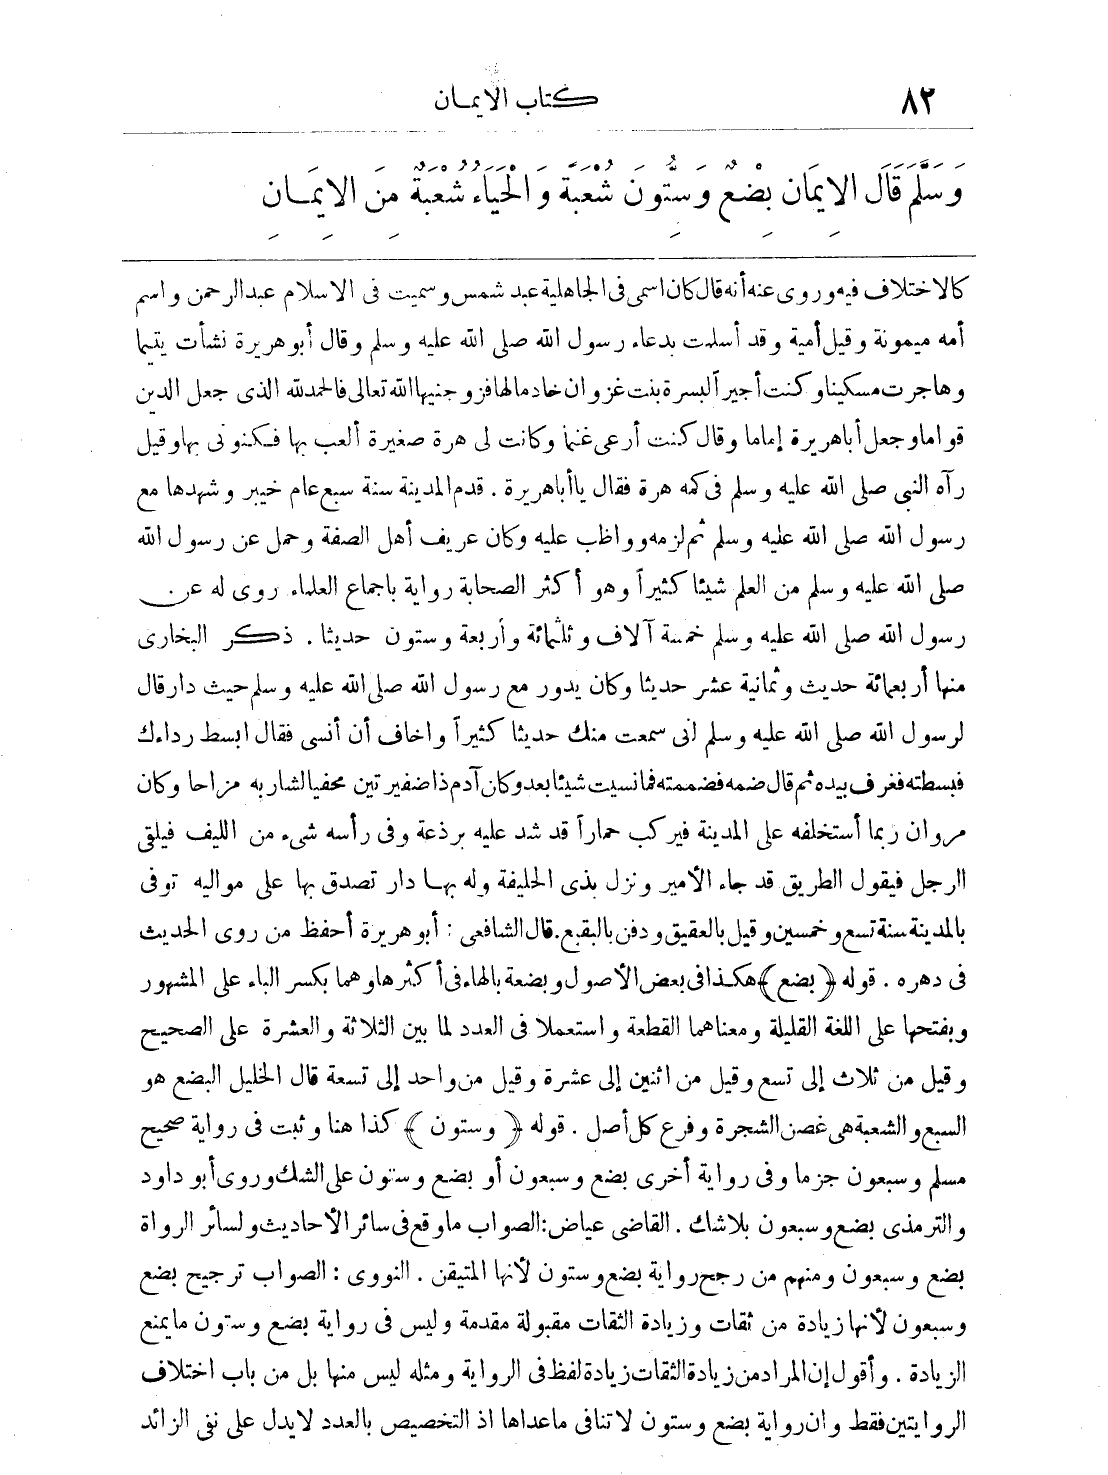 ٨٢
كتاب الايمان
وَسَلَّمَ قَالَ الإِيمَانُ بِضْعٌ وَسِتُّونَ شُعْبَةً وَالْحَيَاءُ شُعْبَةٌ مِنَ الإِيمَـانِ
كالاختلاف فيه وروى عنه أنه قال كان اسمى فى الجاهلية عبد شمس وسميت فى الاسلام عبدالرحمن واسم
أمه ميمونة وقيل أمية وقد أسلمت بدعاء رسول الله صلى الله عليه وسلم وقال أبو هريرة نشأت يتيما
وهاجرت مسكينا وكنت أجيراً لبسرة بنت غزوان خادما لها فزوجنيها الله تعالى فالحمد لله الذى جعل الدين
قواما وجعل أبا هريرة إماما وقال كنت أرعى غنما وكانت لى هرة صغيرة ألعب بها فكنونى بها وقيل
رآه النبى صلى الله عليه وسلم فى كمه هرة فقال يا أبا هريرة . قدم المدينة سنة سبع عام خيبر وشهدها مع
رسول الله صلى الله عليه وسلم ثم لزمه وواظب عليه وكان عريف أهل الصفة وحمل عن رسول الله
صلى الله عليه وسلم من العلم شيئا كثيراً وهو أكثر الصحابة رواية باجماع العلماء روى له عن
رسول الله صلى الله عليه وسلم خمسة آلاف وثلثمائة وأربعة وستون حديثا . ذكر البخارى
منها أربعمائة حديث وثمانية عشر حديثا وكان يدور مع رسول الله صلى الله عليه وسلم حيث دار قال
لرسول الله صلى الله عليه وسلم انى سمعت منك حديثا كثيراً واخاف أن أنسى فقال ابسط رداءك
فبسطته فغرف بيده ثم قال ضمه فضممته فما نسيت شيئا بعد وكان آدم ذا ضفيرتين محفيا لشاربه مزاحا وكان
مروان ربما أستخلفه على المدينة فيركب حماراً قد شد عليه برذعة وفى رأسه شىء من الليف فيلقى
الرجل فيقول الطريق قد جاء الأمير ونزل بذى الحليفة وله بهـا دار تصدق بها على مواليه توفى
بالمدينة سنة تسع وخمسين وقيل بالعقيق ودفن بالبقيع. قال الشافعى : أبو هريرة أحفظ من روى الحديث
فى دهره . قوله ﴿بضع﴾ هكذا فى بعض الأصول وبضعة بالهاء فى أكثرها وهما بكسر الباء على المشهور
وبفتحها على اللغة القليلة ومعناهما القطعة واستعملا فى العدد لما بين الثلاثة والعشرة على الصحيح
وقيل من ثلاث إلى تسع وقيل من اثنين إلى عشرة وقيل من واحد إلى تسعة قال الخليل البضع هو
السبع والشعبة هى غصن الشجرة وفرع كل أصل . قوله ﴿وستون﴾ كذا هنا وثبت فى رواية صحيح
مسلم وسبعون جزما وفى رواية أخرى بضع وسبعون أو بضع وستون على الشك وروى أبو داود
والترمذى بضع وسبعون بلا شك . القاضى عياض: الصواب ما وقع فى سائر الأحاديث ولسائر الرواة
بضع وسبعون ومنهم من رجح رواية بضع وستون لأنها المتيقن . النووى : الصواب ترجيح بضع
وسبعون لأنها زيادة من ثقات وزيادة الثقات مقبولة مقدمة وليس فى رواية بضع وستون ما يمنع
الزيادة . وأقول إن المراد من زيادة الثقات زيادة لفظ فى الرواية ومثله ليس منها بل من باب اختلاف
الروايتين فقط وان رواية بضع وستون لا تنافى ما عداها اذ التخصيص بالعدد لا يدل على نفى الزائد